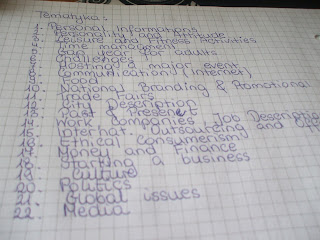 Tematyka:
1. Personal Informations
2. Personality and Attitude
3. Leisure and Fitness Activities
4. Time managment
5. Gap year for adults
6. Challenges
7. Hosting a major event
8. Communication (Internet)
9. Food
10. National Branding & Promotional
11. Trade Fairs
12. City Description
13. Past & Present
14. Work, Companies, Job Description
15. Internat. Outsourcing and Off
16. Ethical Consumerism
17. Money and Finance
18. Starting a business
19. Culture
20. Politics
21. Global issues
22. Media